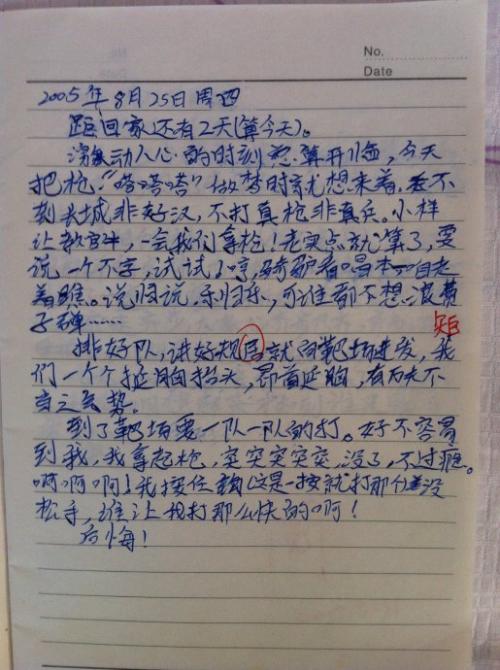 No.
Date
2005年8月25日周四
距回家还有2天(算今天)。
激动人心的时刻总算开临,今天
把枪!“嗒嗒嗒”做梦时就想来着,不
到长城非好汉,不打真枪非真兵。小样
让教官牛,一会我们拿枪!老实点就算了,要
说一个不字,试试!哼,骑驴看唱本咱走
着瞧。说归说,乐归乐,可谁都不想浪费
子弹……
矩
排好队,讲好规居就向靶场进发,我
们一个个挺胸抬头,昂首延胸,有万夫不
当之气势。
到了靶场要一队一队的打。好不容易
到我,我拿起枪,突突突突突,没了,不过瘾。
啊啊啊!我按住(这是一按就打那)没
松手,谁让我打那么快的啊!
后悔!